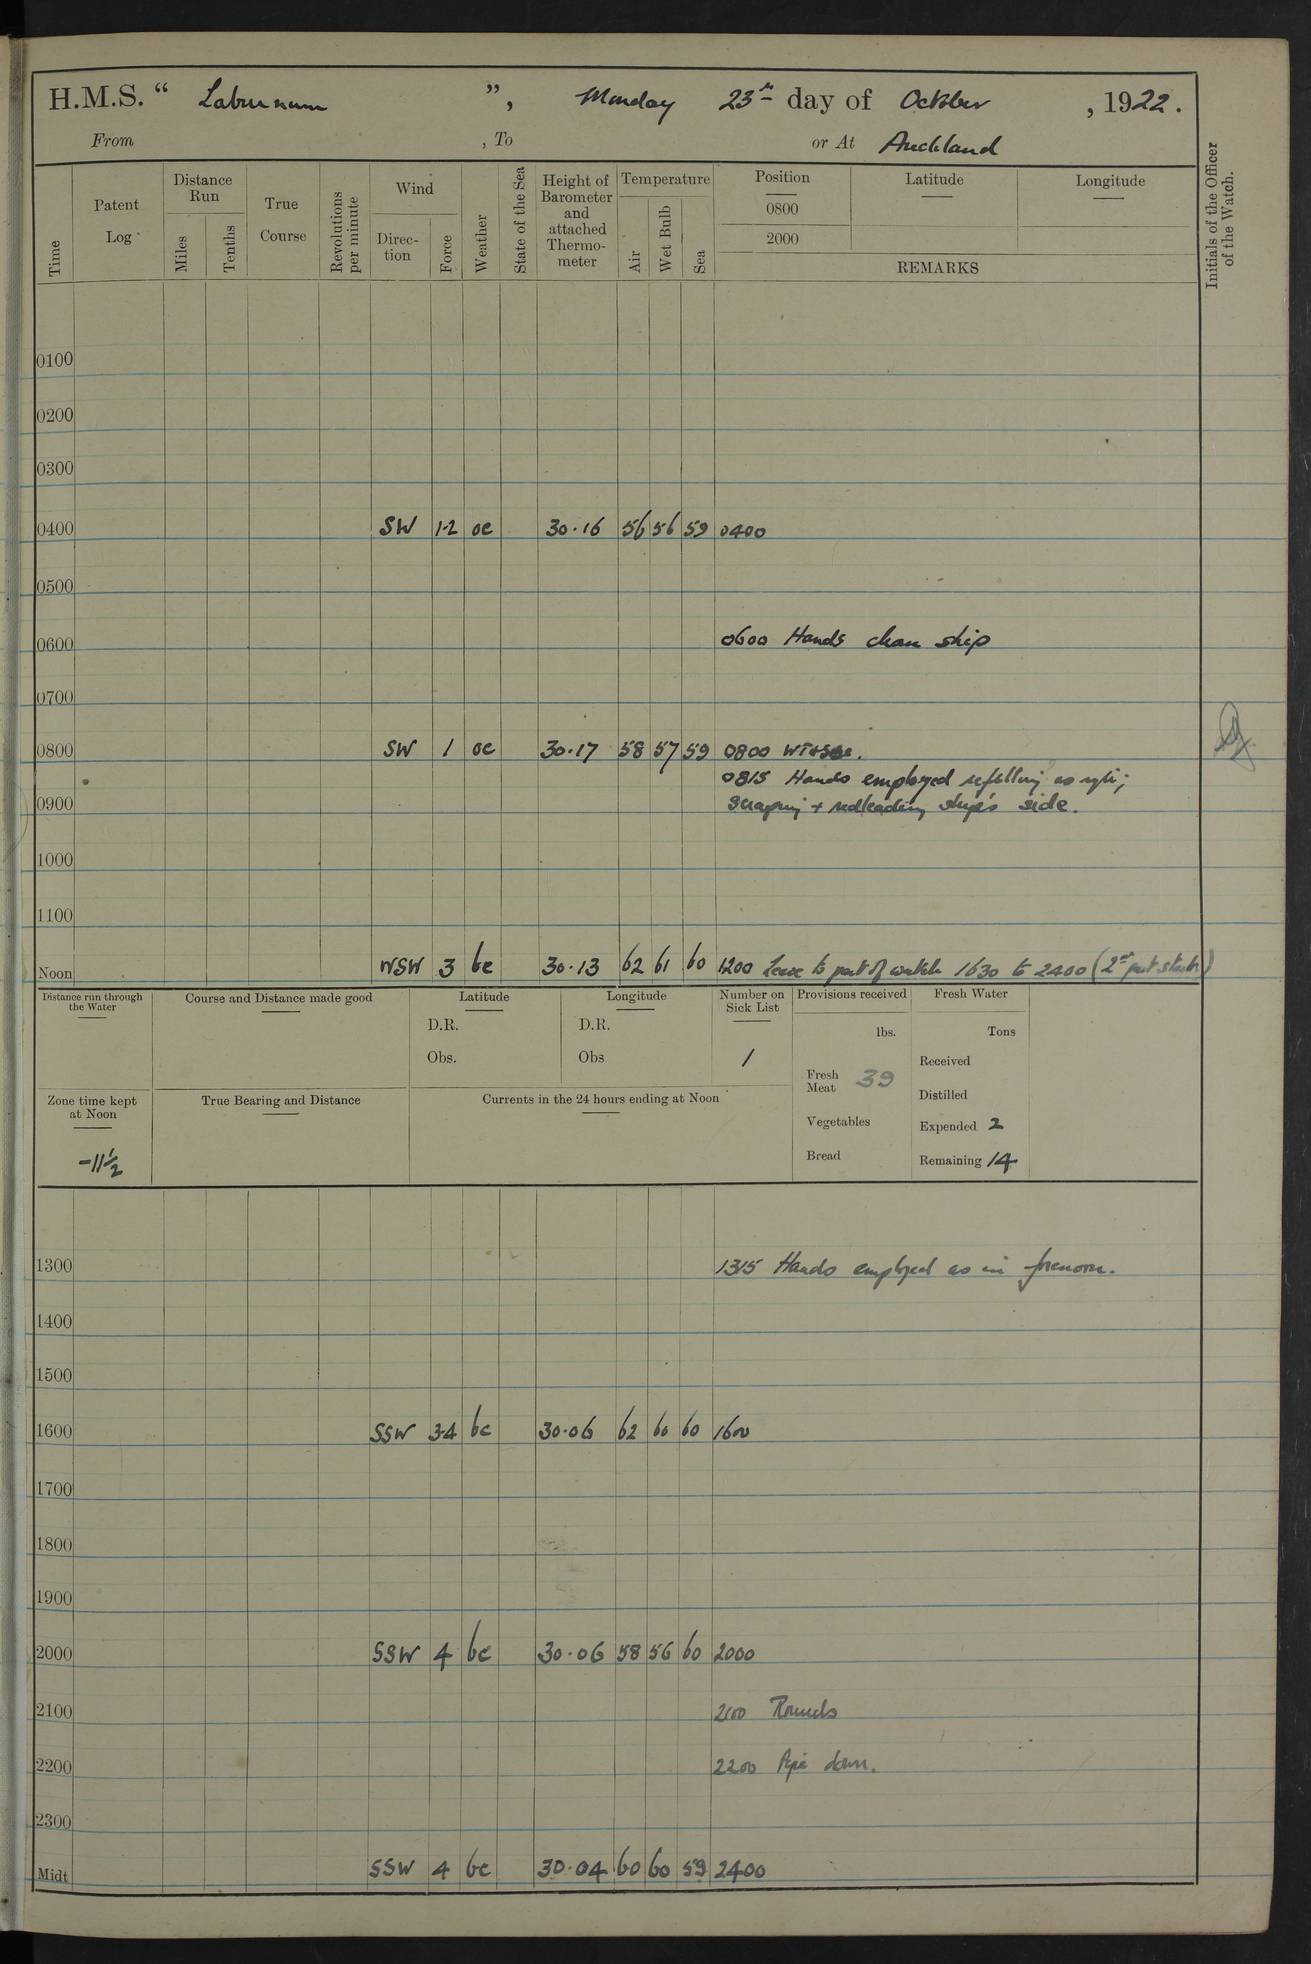 H.M.S. “ Laburnum ”, Monday 23rd day of October , 1922.
From , To or At Auckland
Time
Patent Log
Distance Run
Miles
Tenths
True Course
Revolutions per minute
Wind
Direction
Force
Weather
State of the Sea
Height of Barometer and attached Thermometer
Temperature
Air
Wet Bulb
Sea
Position
0800
2000
Latitude
Longitude
REMARKS
Initials of the Officer of the Watch.
0100
0200
0300
0400 SW 1-2 oc 30.16 56 56 59 0400
0500
0600 0600 Hands clean ship
0700
0800 SW 1 oc 30.17 58 57 59 0800
0815 Hands employed refitting
0900 scraping + redleading ship's side.
1000
1100
Noon WSW 3 bc 30.13 62 61 60 1200 Leave to part of watch 1630 to 2400 (2nd part
Distance run through the Water
Course and Distance made good
Latitude
D.R.
Obs.
Longitude
D.R.
Obs
Number on Sick List
1
Provisions received
lbs.
Fresh Meat 39
Vegetables
Bread
Fresh Water
Tons
Received
Distilled
Expended 2
Remaining 14
Zone time kept at Noon
-11½
True Bearing and Distance
Currents in the 24 hours ending at Noon
1300 1315 Hands employed as in forenoon.
1400
1500
1600 SSW 3-4 bc 30.06 62 60 60 1600
1700
1800
1900
2000 SSW 4 bc 30.06 58 56 60 2000
2100 2100 Rounds
2200 2200 Pipe down.
2300
Midt SSW 4 bc 30.04 60 60 59 2400